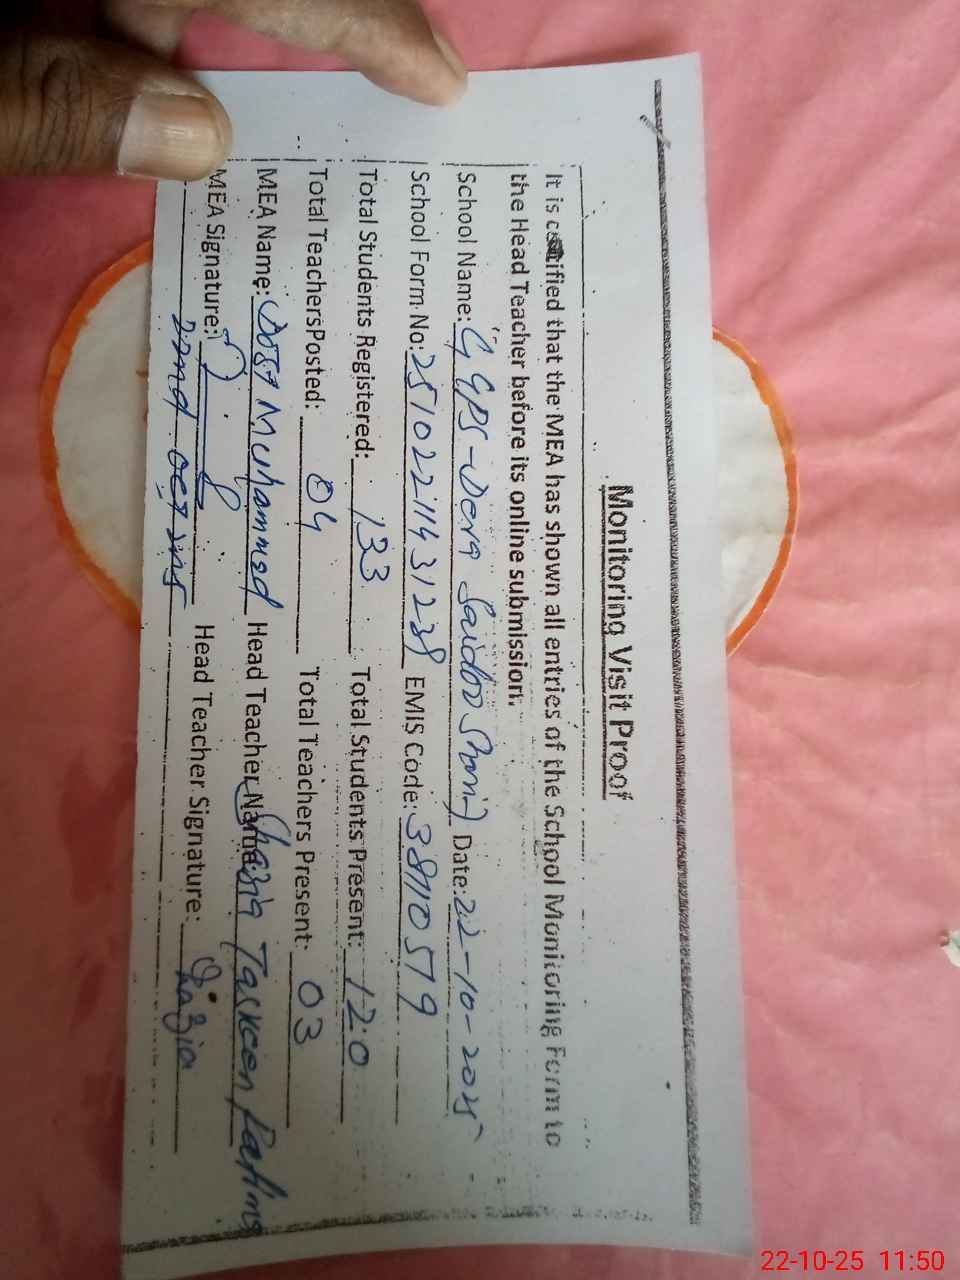 Monitoring Visit Proof
It is certified that the MEA has shown all entries of the School Monitoring Form to
the Head Teacher before its online submission.
School Name: GGPS-Dera Saidoo Sharif Date: 22-10-2025
School Form No: 2510221143123 EMIS Code: 38110579
Total Students Registered: 133 Total Students Present: 120
Total TeachersPosted: 04 Total Teachers Present: 03
MEA Name: Dost Muhammed Head Teacher Name: Shazia Taskeen Fatima
MEA Signature: Head Teacher Signature: Shazia
22nd oct 2025
22-10-25 11:50